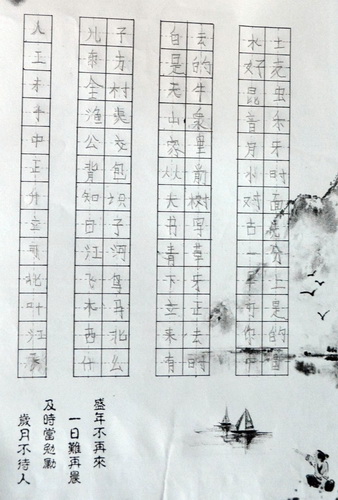 人工木牛中正升立哥北叶江
儿子
东方
全村
渔夫
公交
背包
知识
日子
江河
飞鸟
木马
西北
什么
白云
是的
天牛
山泉
家里
从前
大树
书写
青草
下牙
立正
来去
有时
水土
好
昆虫
音
月牙
水时
对面
古
一
上
可是
你的
中
盛年不再來
一日難再晨
及時當勉勵
歲月不待人